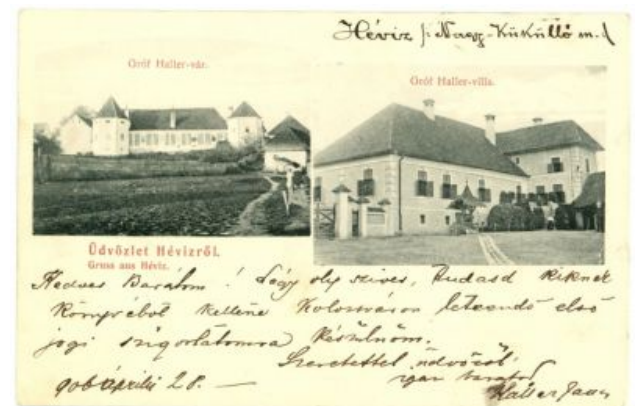 Hévíz (: Nagy-Küküllő m. (
Gróf Haller-vár.
Gróf Haller-villa.
Üdvözlet Hévizről.
Gruss aus Héviz.
Kedves Barátom! Légy oly szives, Tudasd kiknek
könyvéből kellene Kolosváron leteendő első
jogi szigorlatomra készülnöm.
Szeretettel üdvözöl
igaz barátod
906 április 28. —
Haller